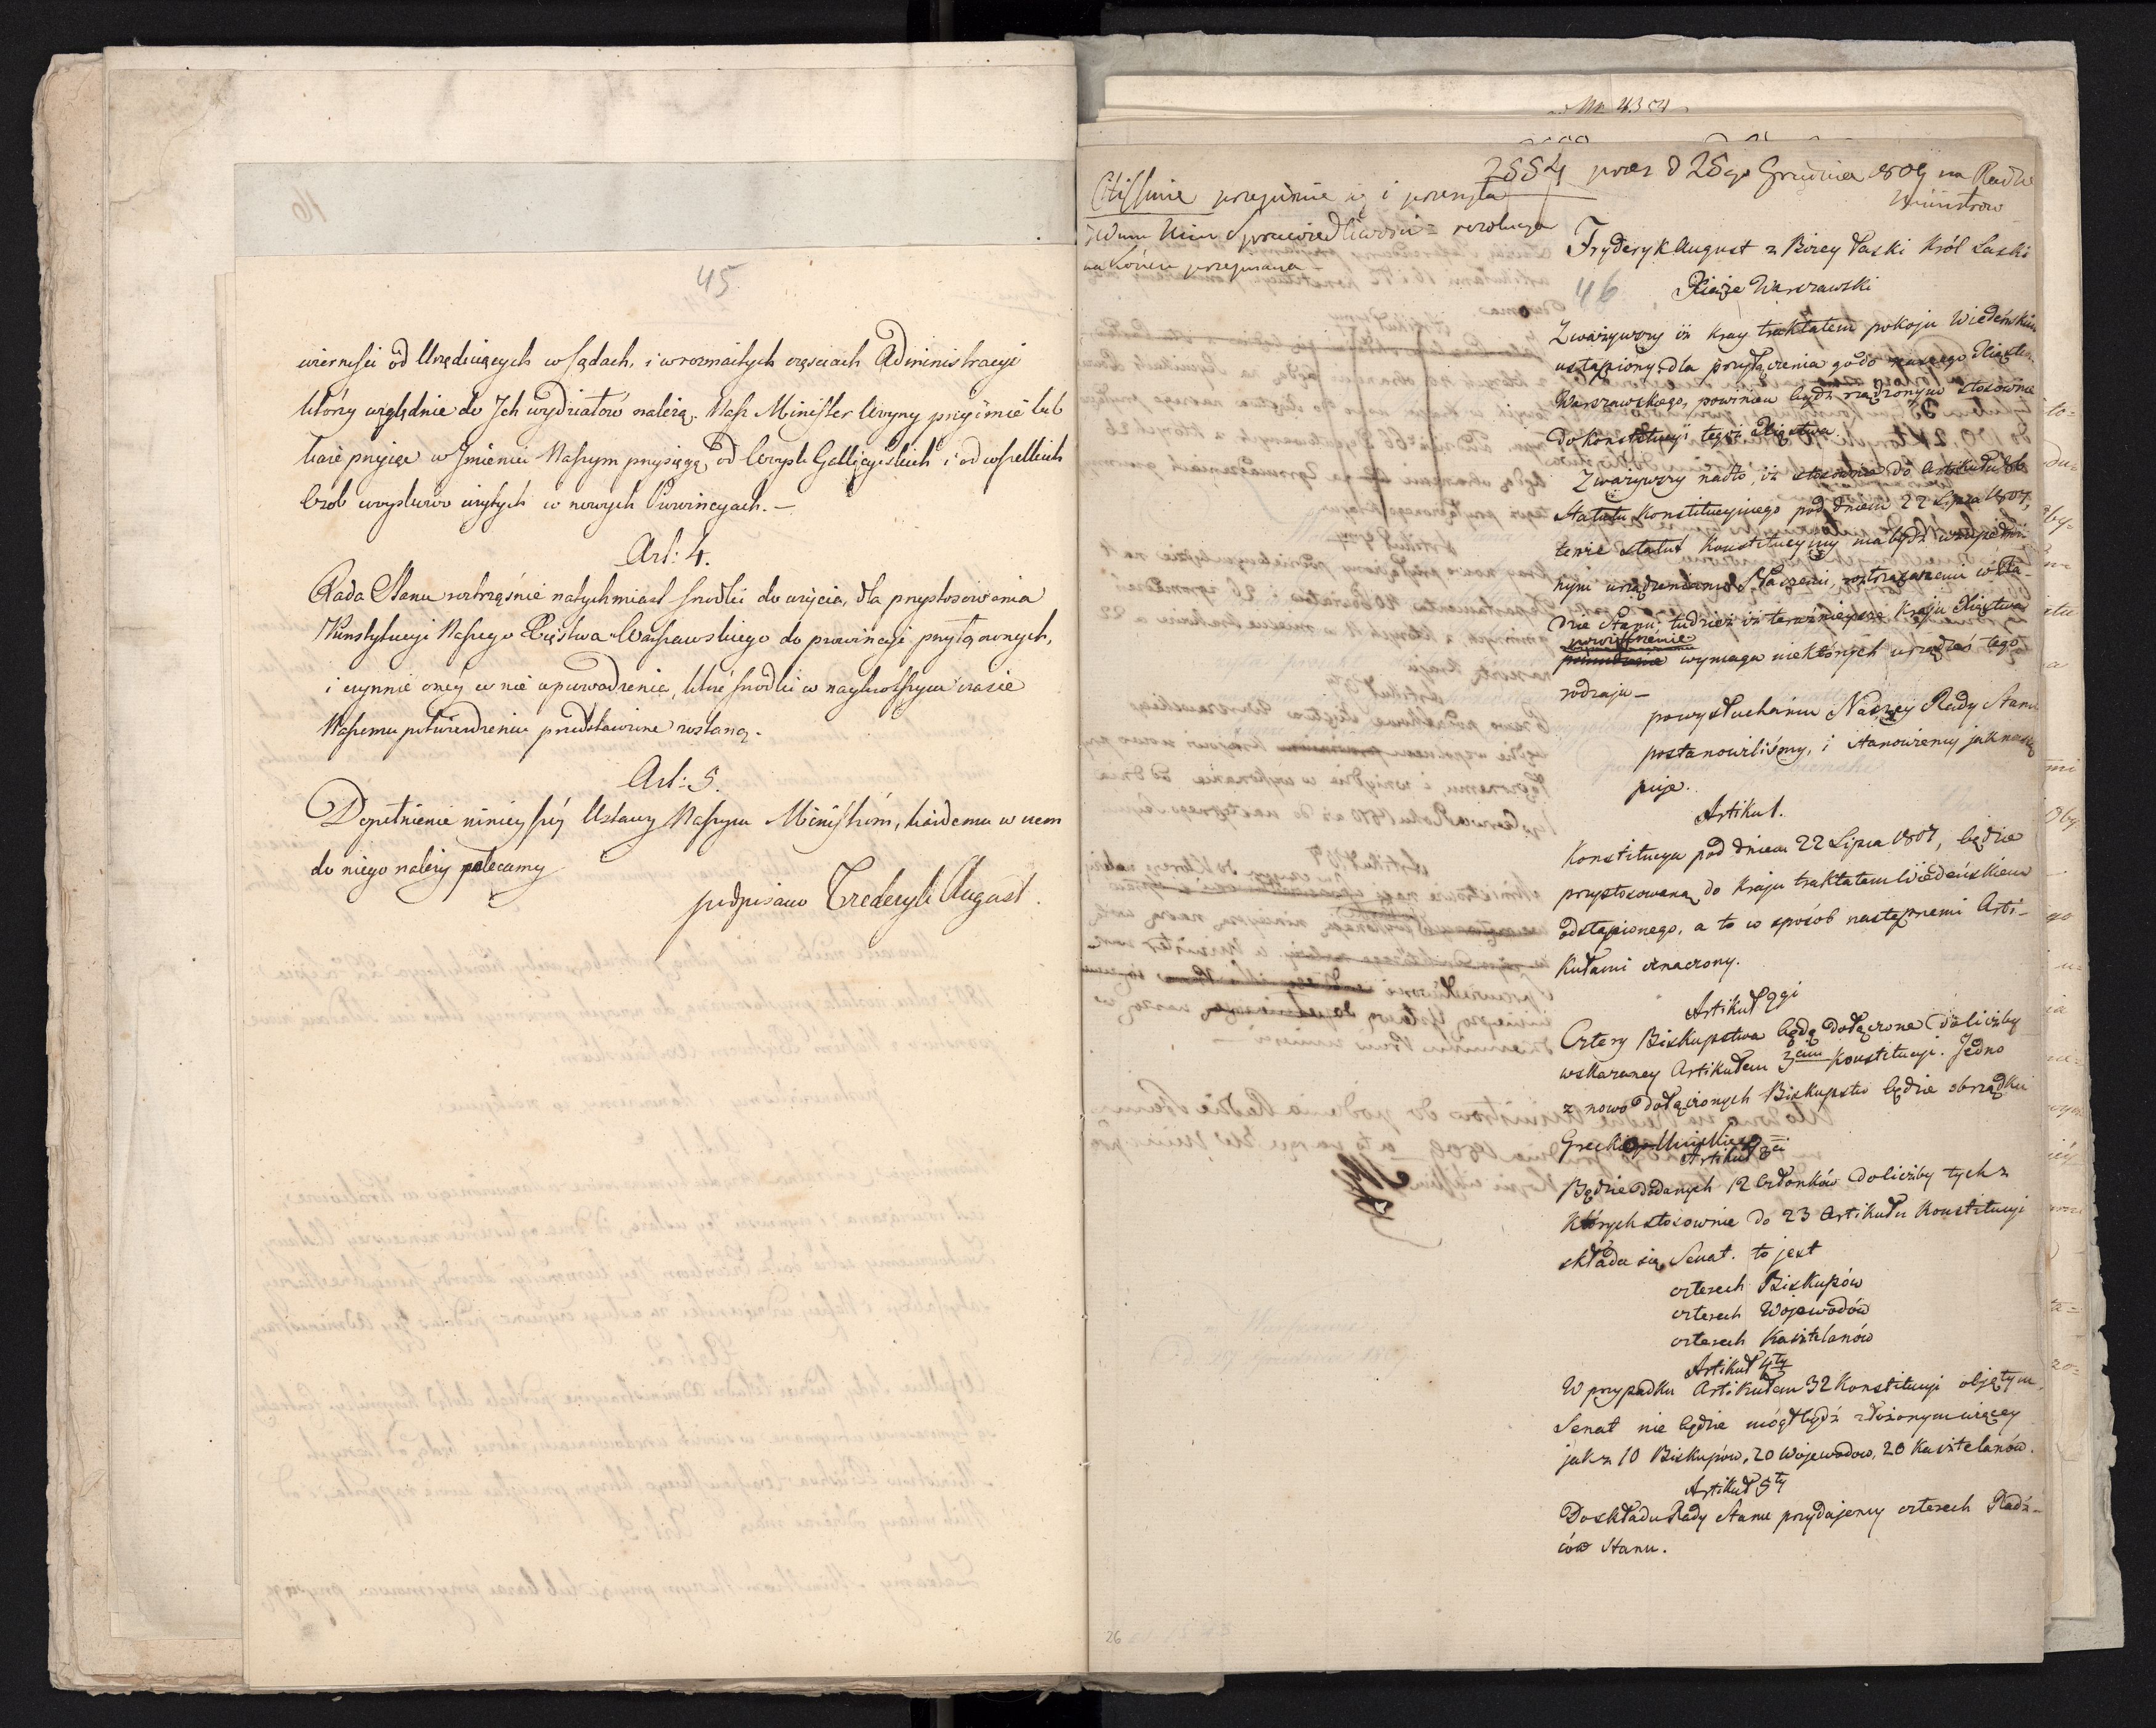 45
wierności od Urzęduiących w sądach, i w rozmaitych częściach Administracyi
którzy względnie do Jch wydziałów należą. Nasz Minister Woyny przyimie lub
każe przyiąć w Jmieniu Naszym przysięgę od Woysk Gallicyiskich i od wszelkich
Osob woyskowo użytych w nowych Prowincyach. —
Art: 4.
Rada Stanu roztrząśnie natychmiast srodki do użycia, dla przystosowania
Konstytucyi Naszego Xięstwa Warszawskiego do prowincyi przyłączonych,
i czynnie onéy w nie wprowadzenia, które srodki w naykrotszym czasie
Naszemu potwierdzeniu przedstawione zostaną.
Art: 5.
Dopełnienie ninieyszéy Ustawy Naszym Ministróm, każdemu w czem
do niego należy polecamy
podpisano Frederyk August.
Nr 4354
2554 prez d 28go Grudnia 1809 na Radzie
Ministrow
Citissime przejmuie się i przesyła
JWmu Mini Sprawiedliwości = rezolucya
na końcu przepisana
Fryderyk August z Bożey Łaski Król Saski
46
Xiąże Warszawski
Zważywszy iż kray traktatem pokoju Wiedeńskim
ustąpiony dla przyłączenia go do naszego Xięstwa
Warszawskiego, powinien bydź rządzonym stosownie
do konstytucyi tegoż Xięstwa
Zważywszy nadto, iż stosownie do Artikułu 86
Statutu Konstitucyinego pod dniem 22 Lipca 1807,
tenże statut Konstitucyjny ma bydź uzupełnio
nym urządzeniami Naszemi, roztrząsanemi w Ra-
dzie Stanu, tudzież iż teraźnieysze Kraju Xięstwa
powiększenie
wymaga niektórych urządzeń tego
rodzaju —
po wysłuchaniu Naszey Rady Stanu
postanowiliśmy, i stanowiemy jak nastę
puje.
Artikuł 1.
Konstitucya pod dniem 22 Lipca 1807, będzie
przystosowaną do Kraju traktatem Wiedeńskiem
odstąpionego, a to w sposób następnemi Arti-
kułami oznaczony.
Artikuł 2gi
Cztery Biskupstwa będą dołączone do liczby
wskazaney Artikułem 3cim Konstitucyi. Jedno
z nowo dołączonych Biskupstw będzie obrządku
Grecko Unickiego
Artikuł 3ci
Będzie dodanych 12 Członków do liczby tych z
których stosownie do 23 Artikułu Konstitucyi
składa się Senat. to jest
czterech Biskupów
czterech Wojewodów
czterech Kasztelanów
Artikuł 4ty
W przypadku Artikułem 32 Konstitucyi objętym,
Senat nie będzie mógł bydź złożonym więcey
jak z 10 Biskupów, 20 Wojewodow, 20 Kasztelanów.
Artikuł 5ty
Do składu Rady Stanu przydajemy czterech Radz-
ców Stanu.
26